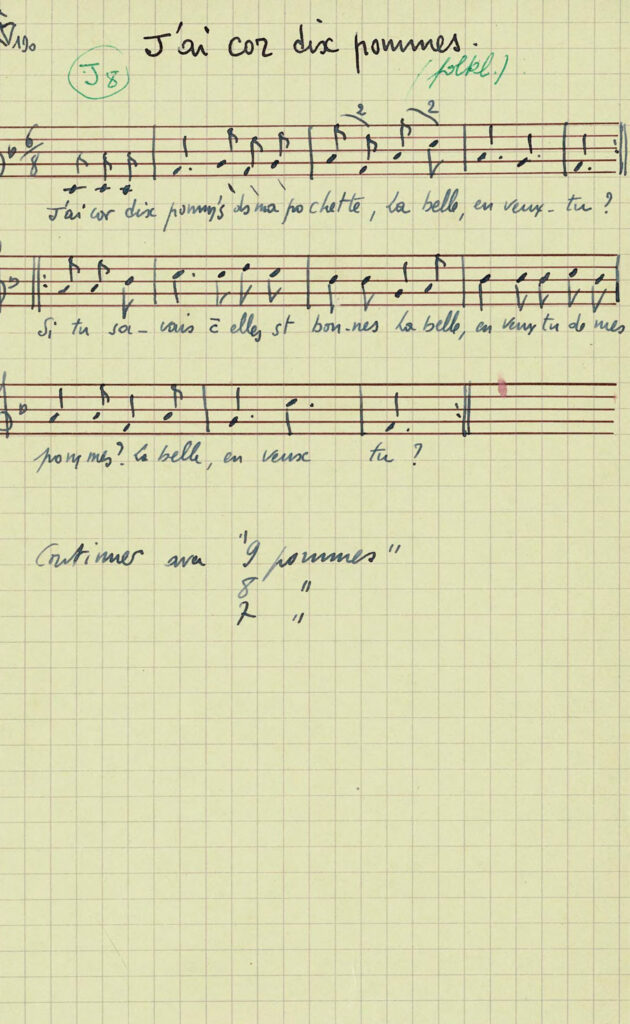 190
J'ai cor dix pommes.
J8
(folkl.)
6/8
2 2
J'ai cor dix pomm's ds ma pochette, la belle, en veux-tu ?
Si tu sa-vais c̄ elles st bon-nes la belle, en veux tu de mes
pommes? la belle, en veux tu ?
Continuer avec "9 pommes"
8 "
7 "